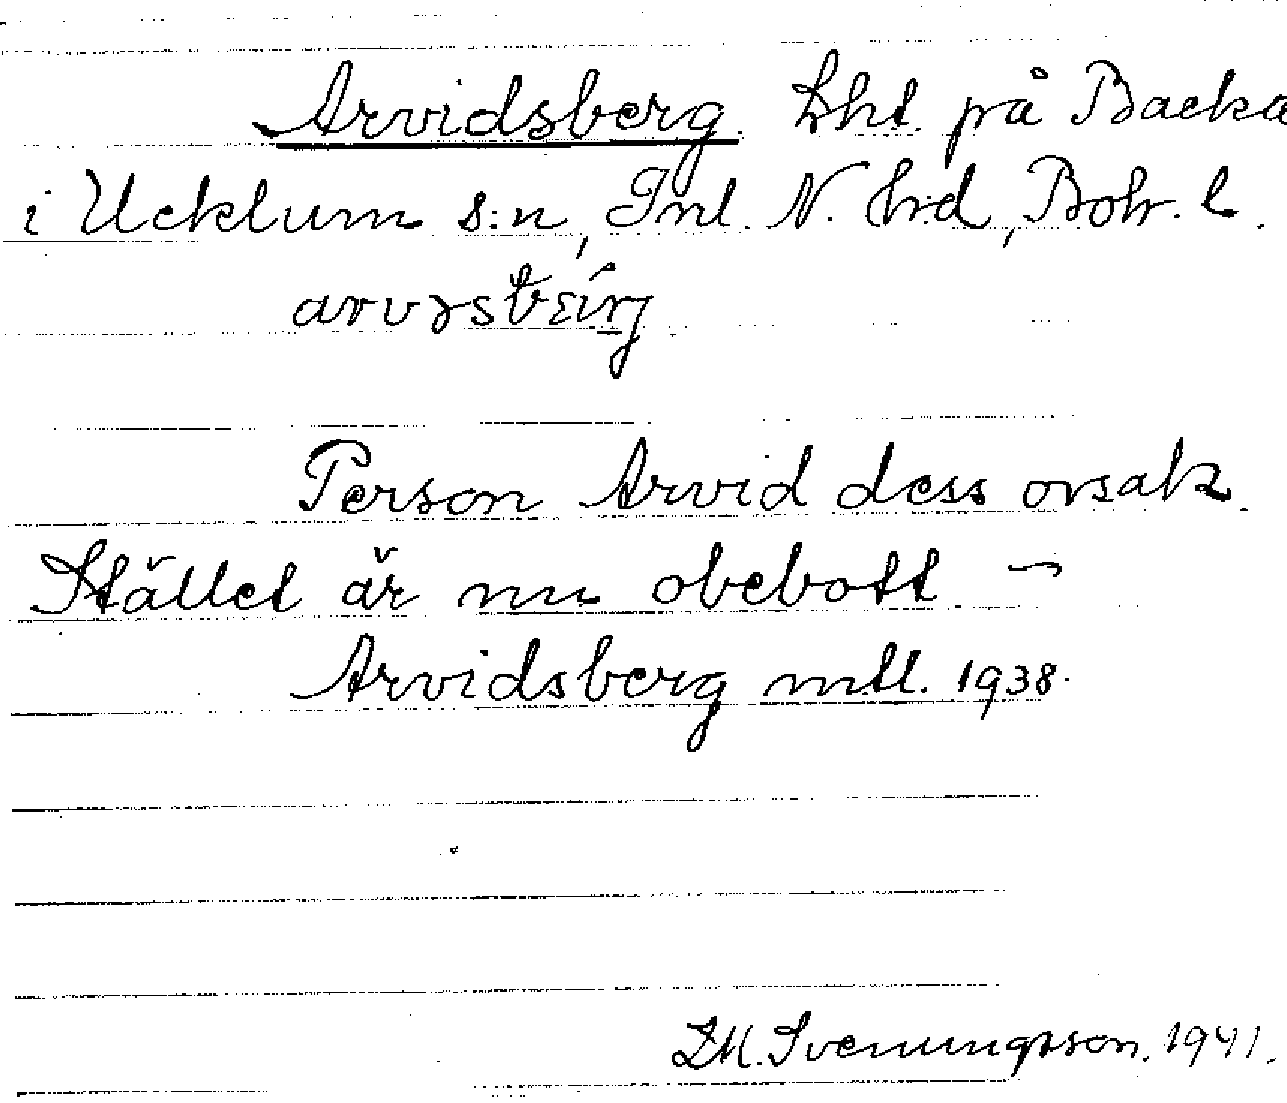 Arvidsberg lht på Backa
i Ucklum s:n, Inl. N. hrd, Boh. l.
Person Arvid dess orsak.
Stället är nu obebott –
Arvidsberg mtl. 1938.
Svenungsson. 1941.